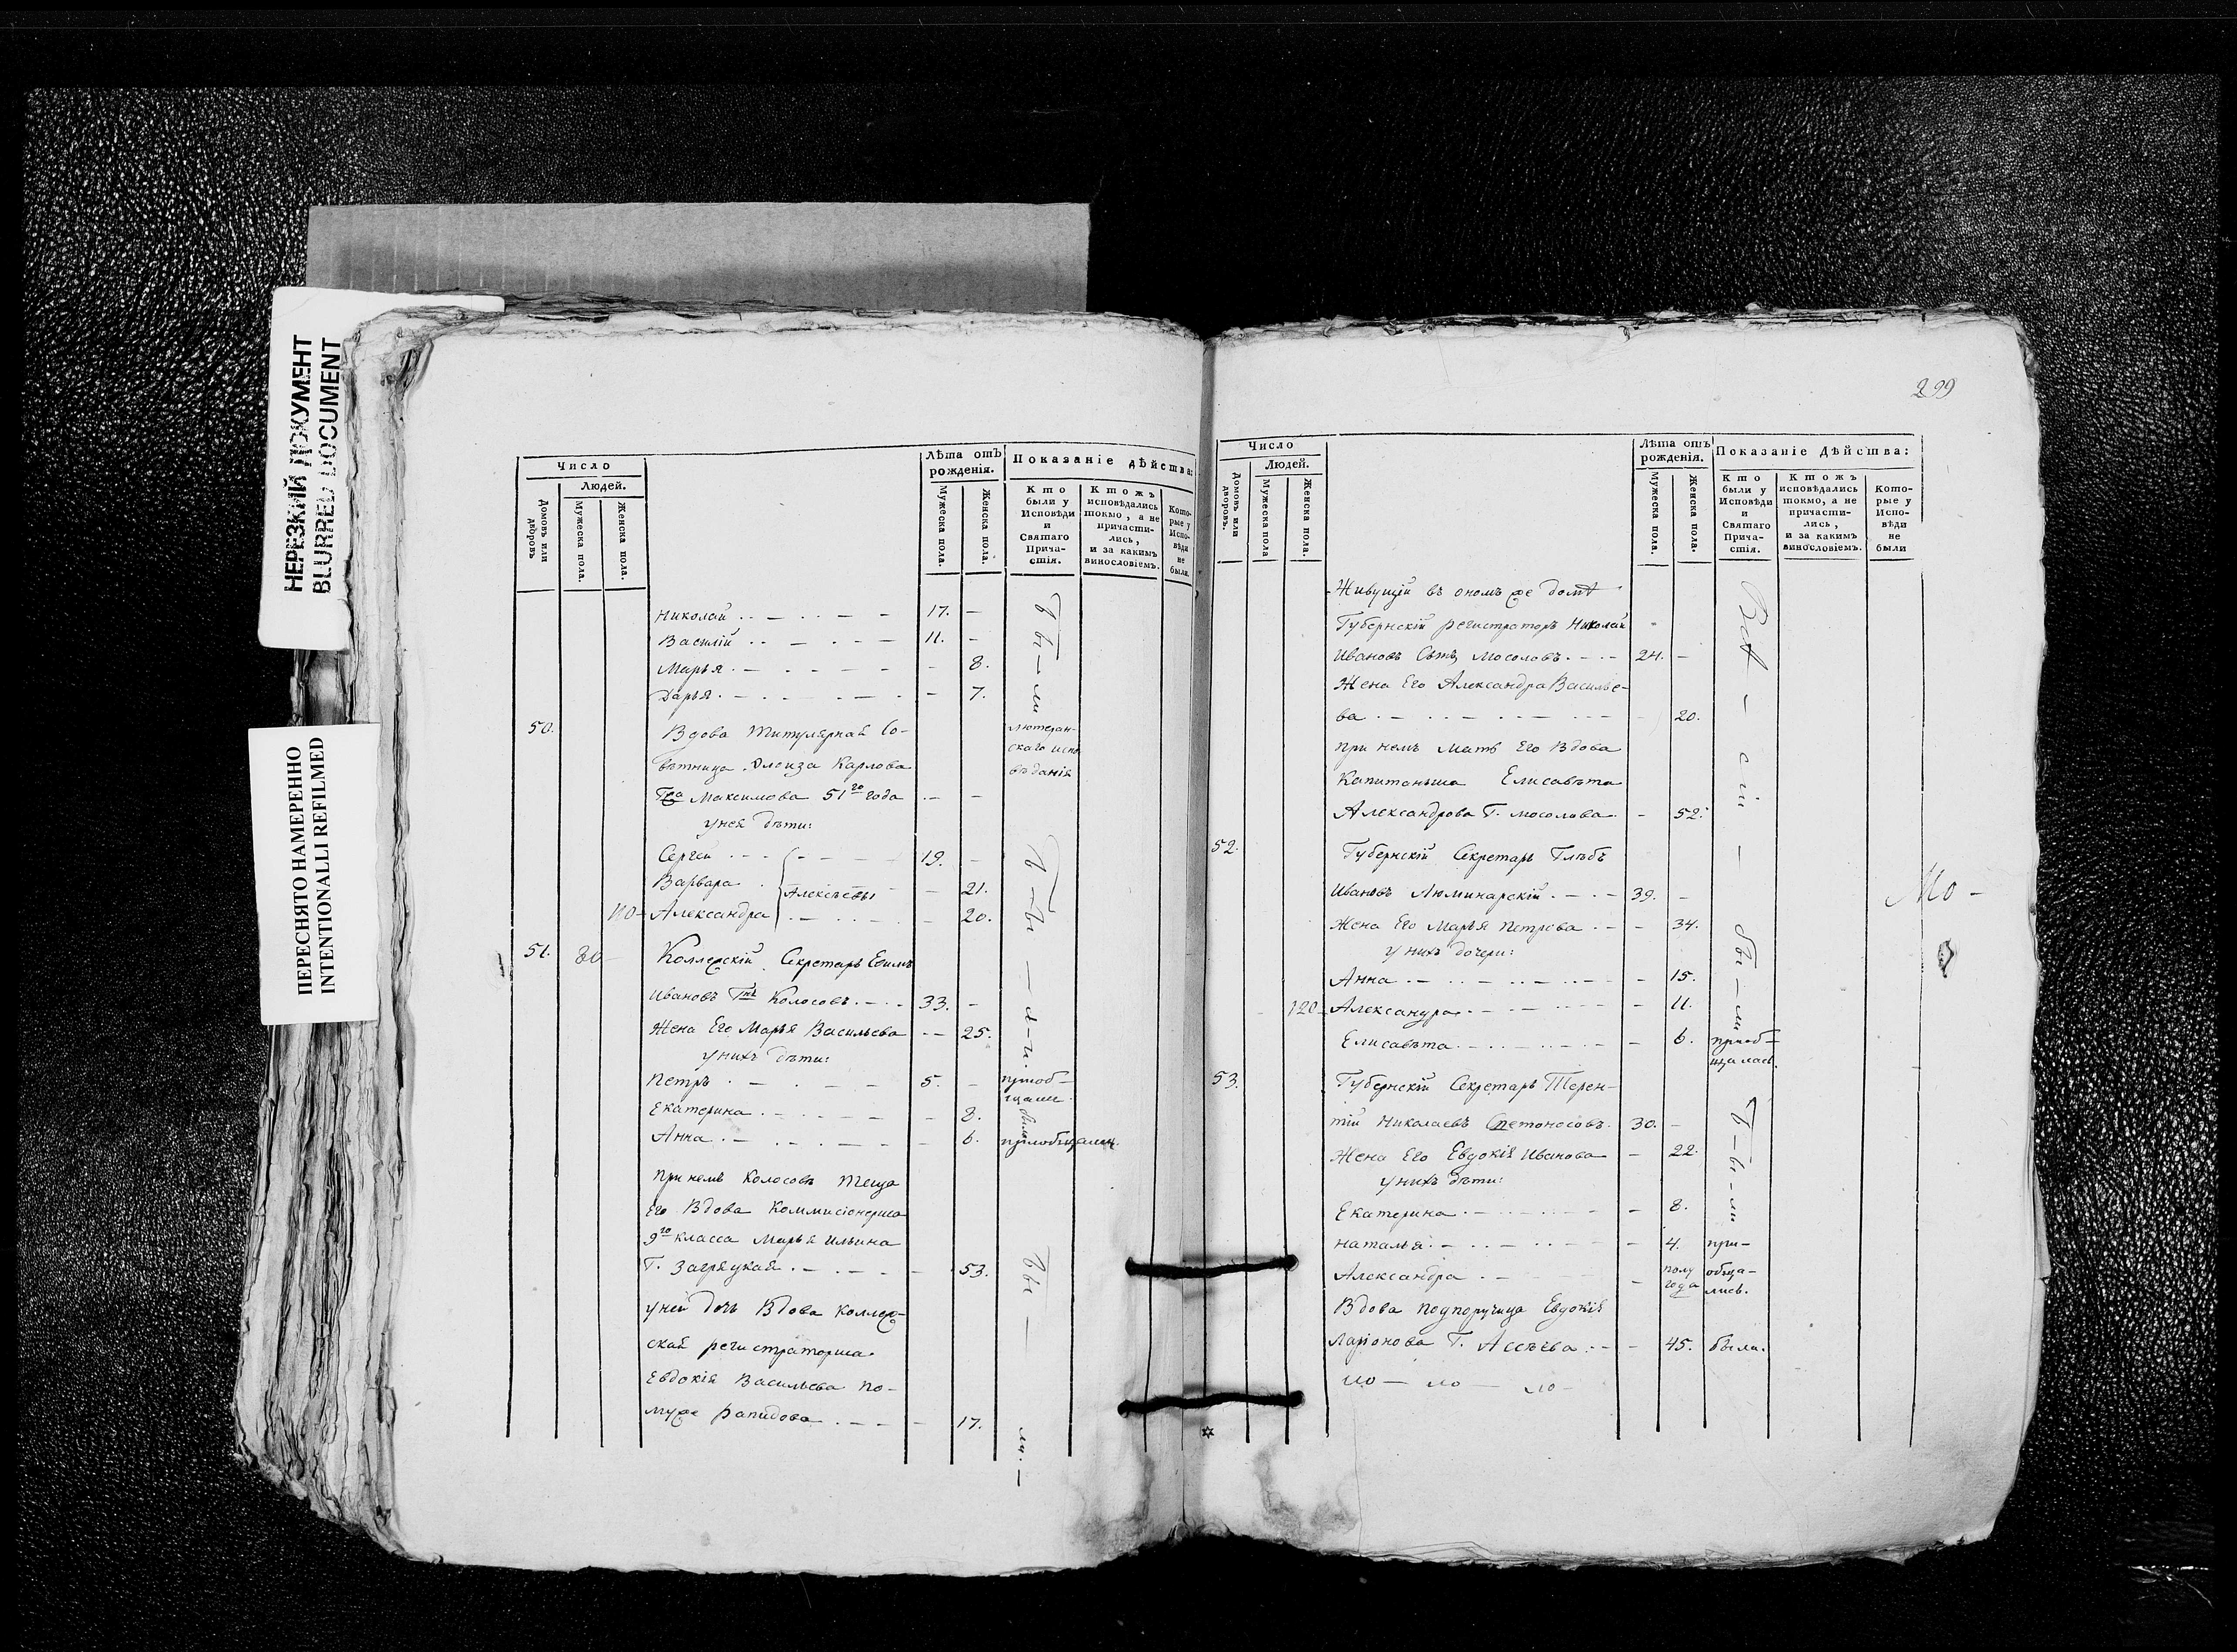 НЕРЕЗКИЙ ДОКУМЕНТ
BLURRED DOCUMENT
ПЕРЕСНЯТО НАМЕРЕННО
INTENTIONALLI REFILMED
Число
Людей.
Домовъ или дворовъ
Мужеска пола.
Женска пола.
Лѣта отъ рожденія.
Мужеска пола.
Женска пола.
Показаніе дѣйства:
Кто были у Исповѣди и Святаго Прича-стія.
Ктожъ исповѣдались токмо, а не причасти-лись, и за какимъ винословіемъ.
Кото-рые у Испо-вѣди не были.
Николай 17. –
Василій 11. –
Марья – 8.
Дарья – 7.
бы – ли
50. Вдова Титулярная Со-
вѣтница Элоиза Карлова
Гжа Максимова 51го года – –
лютеран-
скаго испо
вѣданія
у нея дѣти:
Сергей 19. –
Варвара Алексѣевы – 21.
110 – Александра – 20.
51. 80 – Коллежскій Секретарь Ефимъ
Ивановъ Гнъ Колосовъ 33. –
Жена Его Марья Васильева – 25.
бы – ли
у нихъ дѣти:
Петръ 5. – приоб-
щали
Екатерина – 8. была
Анна – 6. приобщались
При немъ Колосовѣ теща
Его Вдова Коммисіонерша
9го класса Марья Ильина
Г. Загряцкая – 53.
у ней дочь Вдова Коллеж-
ская регистраторша
Евдокія Васильева по-
мужѣ Рапидова – 17.
бы – ли. –
299
Число
Людей.
Домовъ или дворовъ.
Мужеска пола
Женска пола.
Лѣта отъ рожденія.
Мужеска пола.
Женска пола.
Показаніе дѣйства:
Кто были у Исповѣди и Святаго Прича-стія.
Ктожъ исповѣдались токмо, а не причасти-лись, и за какимъ винословіемъ.
Кото-рые у Испо-вѣди не были
Живущій въ ономъ же домѣ
Губернскій регистраторъ Николай
Ивановъ Сынъ Мосоловъ 24. –
Жена Его Александра Василье-
ва – 20.
при немъ мать Его Вдова
Капитанша Елисавѣта
Александрова Г. Мосолова – 52.
52. Губернскій Секретарь Глѣбъ
Ивановъ Люминарскій 39. –
Жена Его Марья Петрова – 34.
у нихъ дочери:
Анна – 15.
120 – Александра – 11.
Всѣ – сіи – бы – ли
Елисавѣта – 6. приоб-
щалась
53. Губернскій Секретарь Терен-
тій Николаевъ 30. –
Жена Его Евдокія Иванова – 22.
у нихъ дѣти:
Екатерина – 8.
бы – ли
Наталья – 4. при-
Александра – полу года обща-
лись.
Вдова подпоручица Евдокія
Ларіонова Г. Асѣева – 45. была.